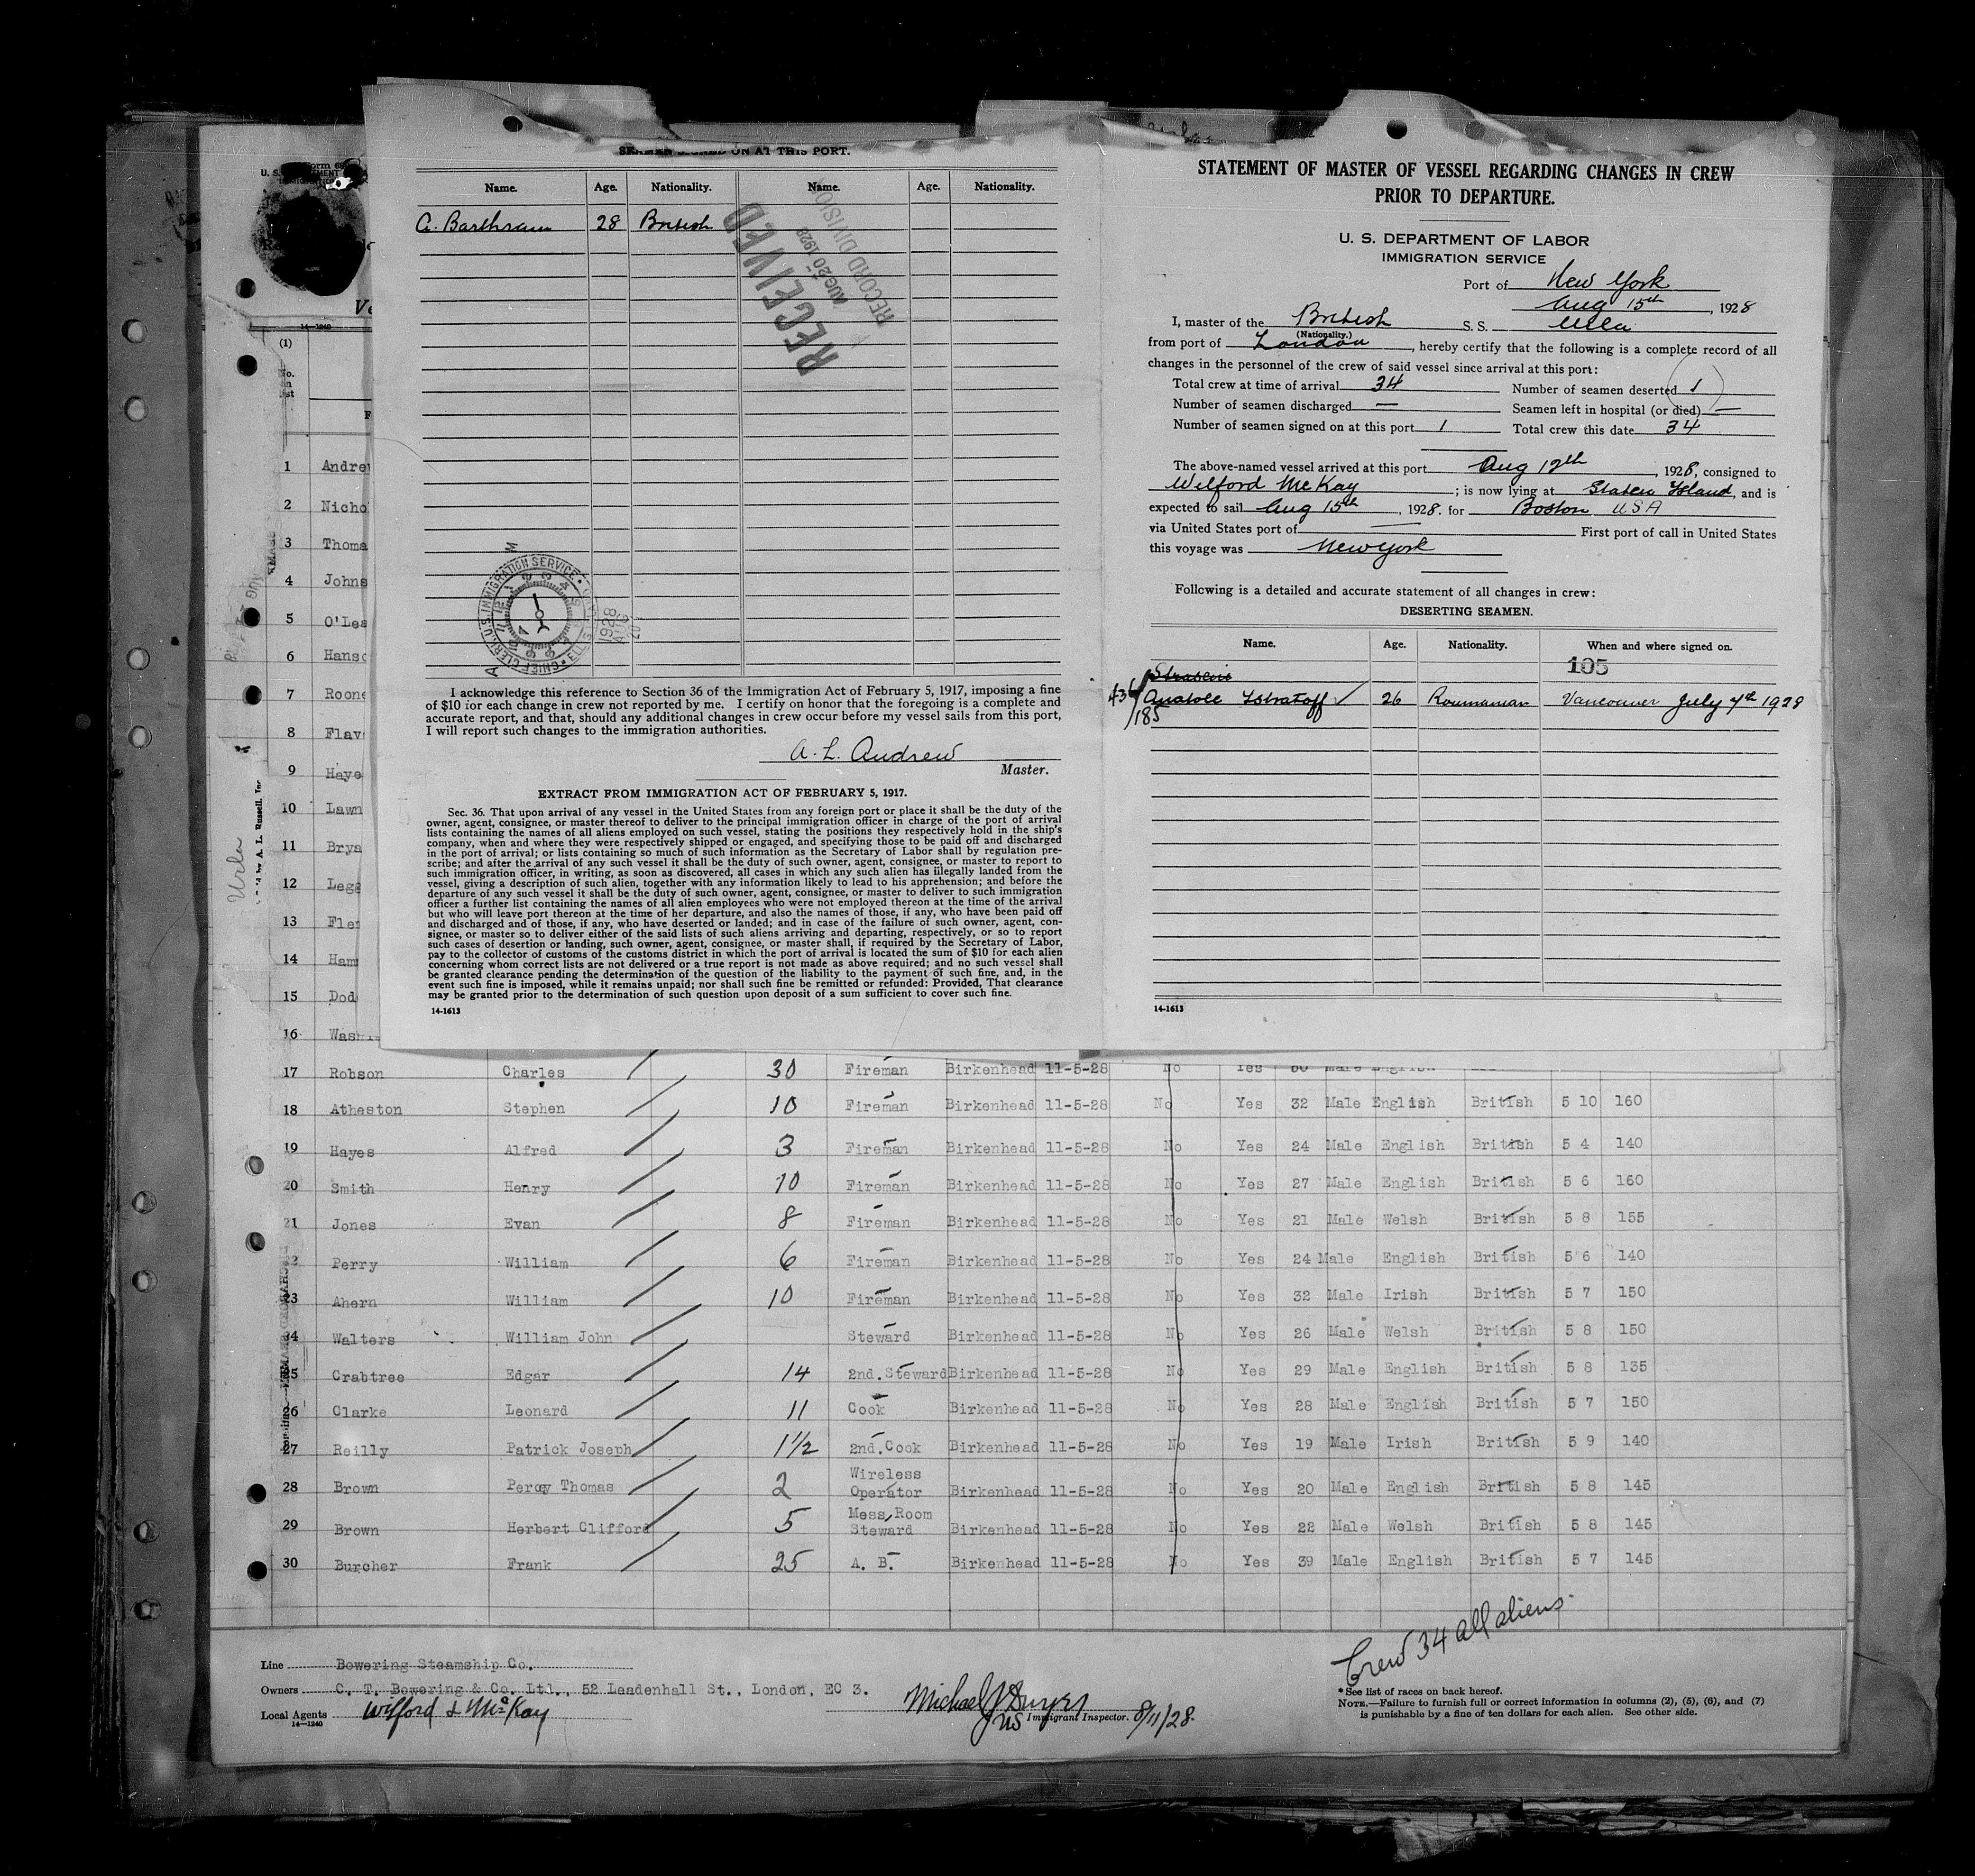 SEAMEN SIGNED ON AT THIS PORT.
Name. Age. Nationality. Name. Age. Nationality.
A. Barthram 28 British
RECEIVED
AUG 20 1928
RECORD DIVISION
CHIEF CLERK, U.S. IMMIGRATION SERVICE
1928
I acknowledge this reference to Section 36 of the Immigration Act of February 5, 1917, imposing a fine
of $10 for each change in crew not reported by me. I certify on honor that the foregoing is a complete and
accurate report, and that, should any additional changes in crew occur before my vessel sails from this port,
I will report such changes to the immigration authorities.
A. L. Andrew
Master.
EXTRACT FROM IMMIGRATION ACT OF FEBRUARY 5, 1917.
Sec. 36. That upon arrival of any vessel in the United States from any foreign port or place it shall be the duty of the
owner, agent, consignee, or master thereof to deliver to the principal immigration officer in charge of the port of arrival
lists containing the names of all aliens employed on such vessel, stating the positions they respectively hold in the ship's
company, when and where they were respectively shipped or engaged, and specifying those to be paid off and discharged
in the port of arrival; or lists containing so much of such information as the Secretary of Labor shall by regulation pre-
scribe; and after the arrival of any such vessel it shall be the duty of such owner, agent, consignee, or master to report to
such immigration officer, in writing, as soon as discovered, all cases in which any such alien has illegally landed from the
vessel, giving a description of such alien, together with any information likely to lead to his apprehension; and before the
departure of any such vessel it shall be the duty of such owner, agent, consignee, or master to deliver to such immigration
officer a further list containing the names of all alien employees who were not employed thereon at the time of the arrival
but who will leave port thereon at the time of her departure, and also the names of those, if any, who have been paid off
and discharged and of those, if any, who have deserted or landed; and in case of the failure of such owner, agent, con-
signee, or master so to deliver either of the said lists of such aliens arriving and departing, respectively, or so to report
such cases of desertion or landing, such owner, agent, consignee, or master shall, if required by the Secretary of Labor,
pay to the collector of customs of the customs district in which the port of arrival is located the sum of $10 for each alien
concerning whom correct lists are not delivered or a true report is not made as above required; and no such vessel shall
be granted clearance pending the determination of the question of the liability to the payment of such fine, and, in the
event such fine is imposed, while it remains unpaid; nor shall such fine be remitted or refunded: Provided, That clearance
may be granted prior to the determination of such question upon deposit of a sum sufficient to cover such fine.
14-1613
STATEMENT OF MASTER OF VESSEL REGARDING CHANGES IN CREW
PRIOR TO DEPARTURE.
U. S. DEPARTMENT OF LABOR
IMMIGRATION SERVICE
Port of New York
Aug 15th, 1928
I, master of the British S. S. Urla
(Nationality.)
from port of London, hereby certify that the following is a complete record of all
changes in the personnel of the crew of said vessel since arrival at this port:
Total crew at time of arrival 34 Number of seamen deserted 1
Number of seamen discharged — Seamen left in hospital (or died) —
Number of seamen signed on at this port 1 Total crew this date 34
The above-named vessel arrived at this port Aug 12th, 1928, consigned to
Wilford McKay; is now lying at Staten Island, and is
expected to sail Aug 15th, 1928. for Boston USA
via United States port of — First port of call in United States
this voyage was New York
Following is a detailed and accurate statement of all changes in crew:
DESERTING SEAMEN.
Name. Age. Nationality. When and where signed on.
105
436/185 Anatole Istratoff ✓ 26 Roumanian Vancouver July 4th 1928
14-1613
14-1240
(1)
1 Andrew
2 Nicho
3 Thoma
4 Johns
5 O'Lea
6 Hanso
7 Roone
8 Flav
9 Haye
10 Lawn
11 Brya
12 Lega
13 Fle
14 Ham
15 Dod
16 Wash
Urla
17 Robson Charles 30 Fireman Birkenhead 11-5-28 No Yes 30 Male English
18 Atheston Stephen 10 Fireman Birkenhead 11-5-28 No Yes 32 Male English British 5 10 160
19 Hayes Alfred 3 Fireman Birkenhead 11-5-28 No Yes 24 Male English British 5 4 140
20 Smith Henry 10 Fireman Birkenhead 11-5-28 No Yes 27 Male English British 5 6 160
21 Jones Evan 8 Fireman Birkenhead 11-5-28 No Yes 21 Male Welsh British 5 8 155
22 Perry William 6 Fireman Birkenhead 11-5-28 No Yes 24 Male English British 5 6 140
23 Ahern William 10 Fireman Birkenhead 11-5-28 No Yes 32 Male Irish British 5 7 150
24 Walters William John Steward Birkenhead 11-5-28 No Yes 26 Male Welsh British 5 8 150
25 Crabtree Edgar 14 2nd. Steward Birkenhead 11-5-28 No Yes 29 Male English British 5 8 135
26 Clarke Leonard 11 Cook Birkenhead 11-5-28 No Yes 28 Male English British 5 7 150
27 Reilly Patrick Joseph 1½ 2nd. Cook Birkenhead 11-5-28 No Yes 19 Male Irish British 5 9 140
28 Brown Percy Thomas 2 Wireless Operator Birkenhead 11-5-28 No Yes 20 Male English British 5 8 145
29 Brown Herbert Clifford 5 Mess Room Steward Birkenhead 11-5-28 No Yes 22 Male Welsh British 5 8 145
30 Burcher Frank 25 A. B. Birkenhead 11-5-28 No Yes 39 Male English British 5 7 145
Crew 34 all aliens.
Line Bowering Steamship Co.
Owners C. T. Bowering & Co. Ltd., 52 Leadenhall St., London, EC 3.
Local Agents Wilford & McKay
14-1240
Michael J
US Immigrant Inspector. 8/11/28.
*See list of races on back hereof.
NOTE.—Failure to furnish full or correct information in columns (2), (5), (6), and (7)
is punishable by a fine of ten dollars for each alien. See other side.